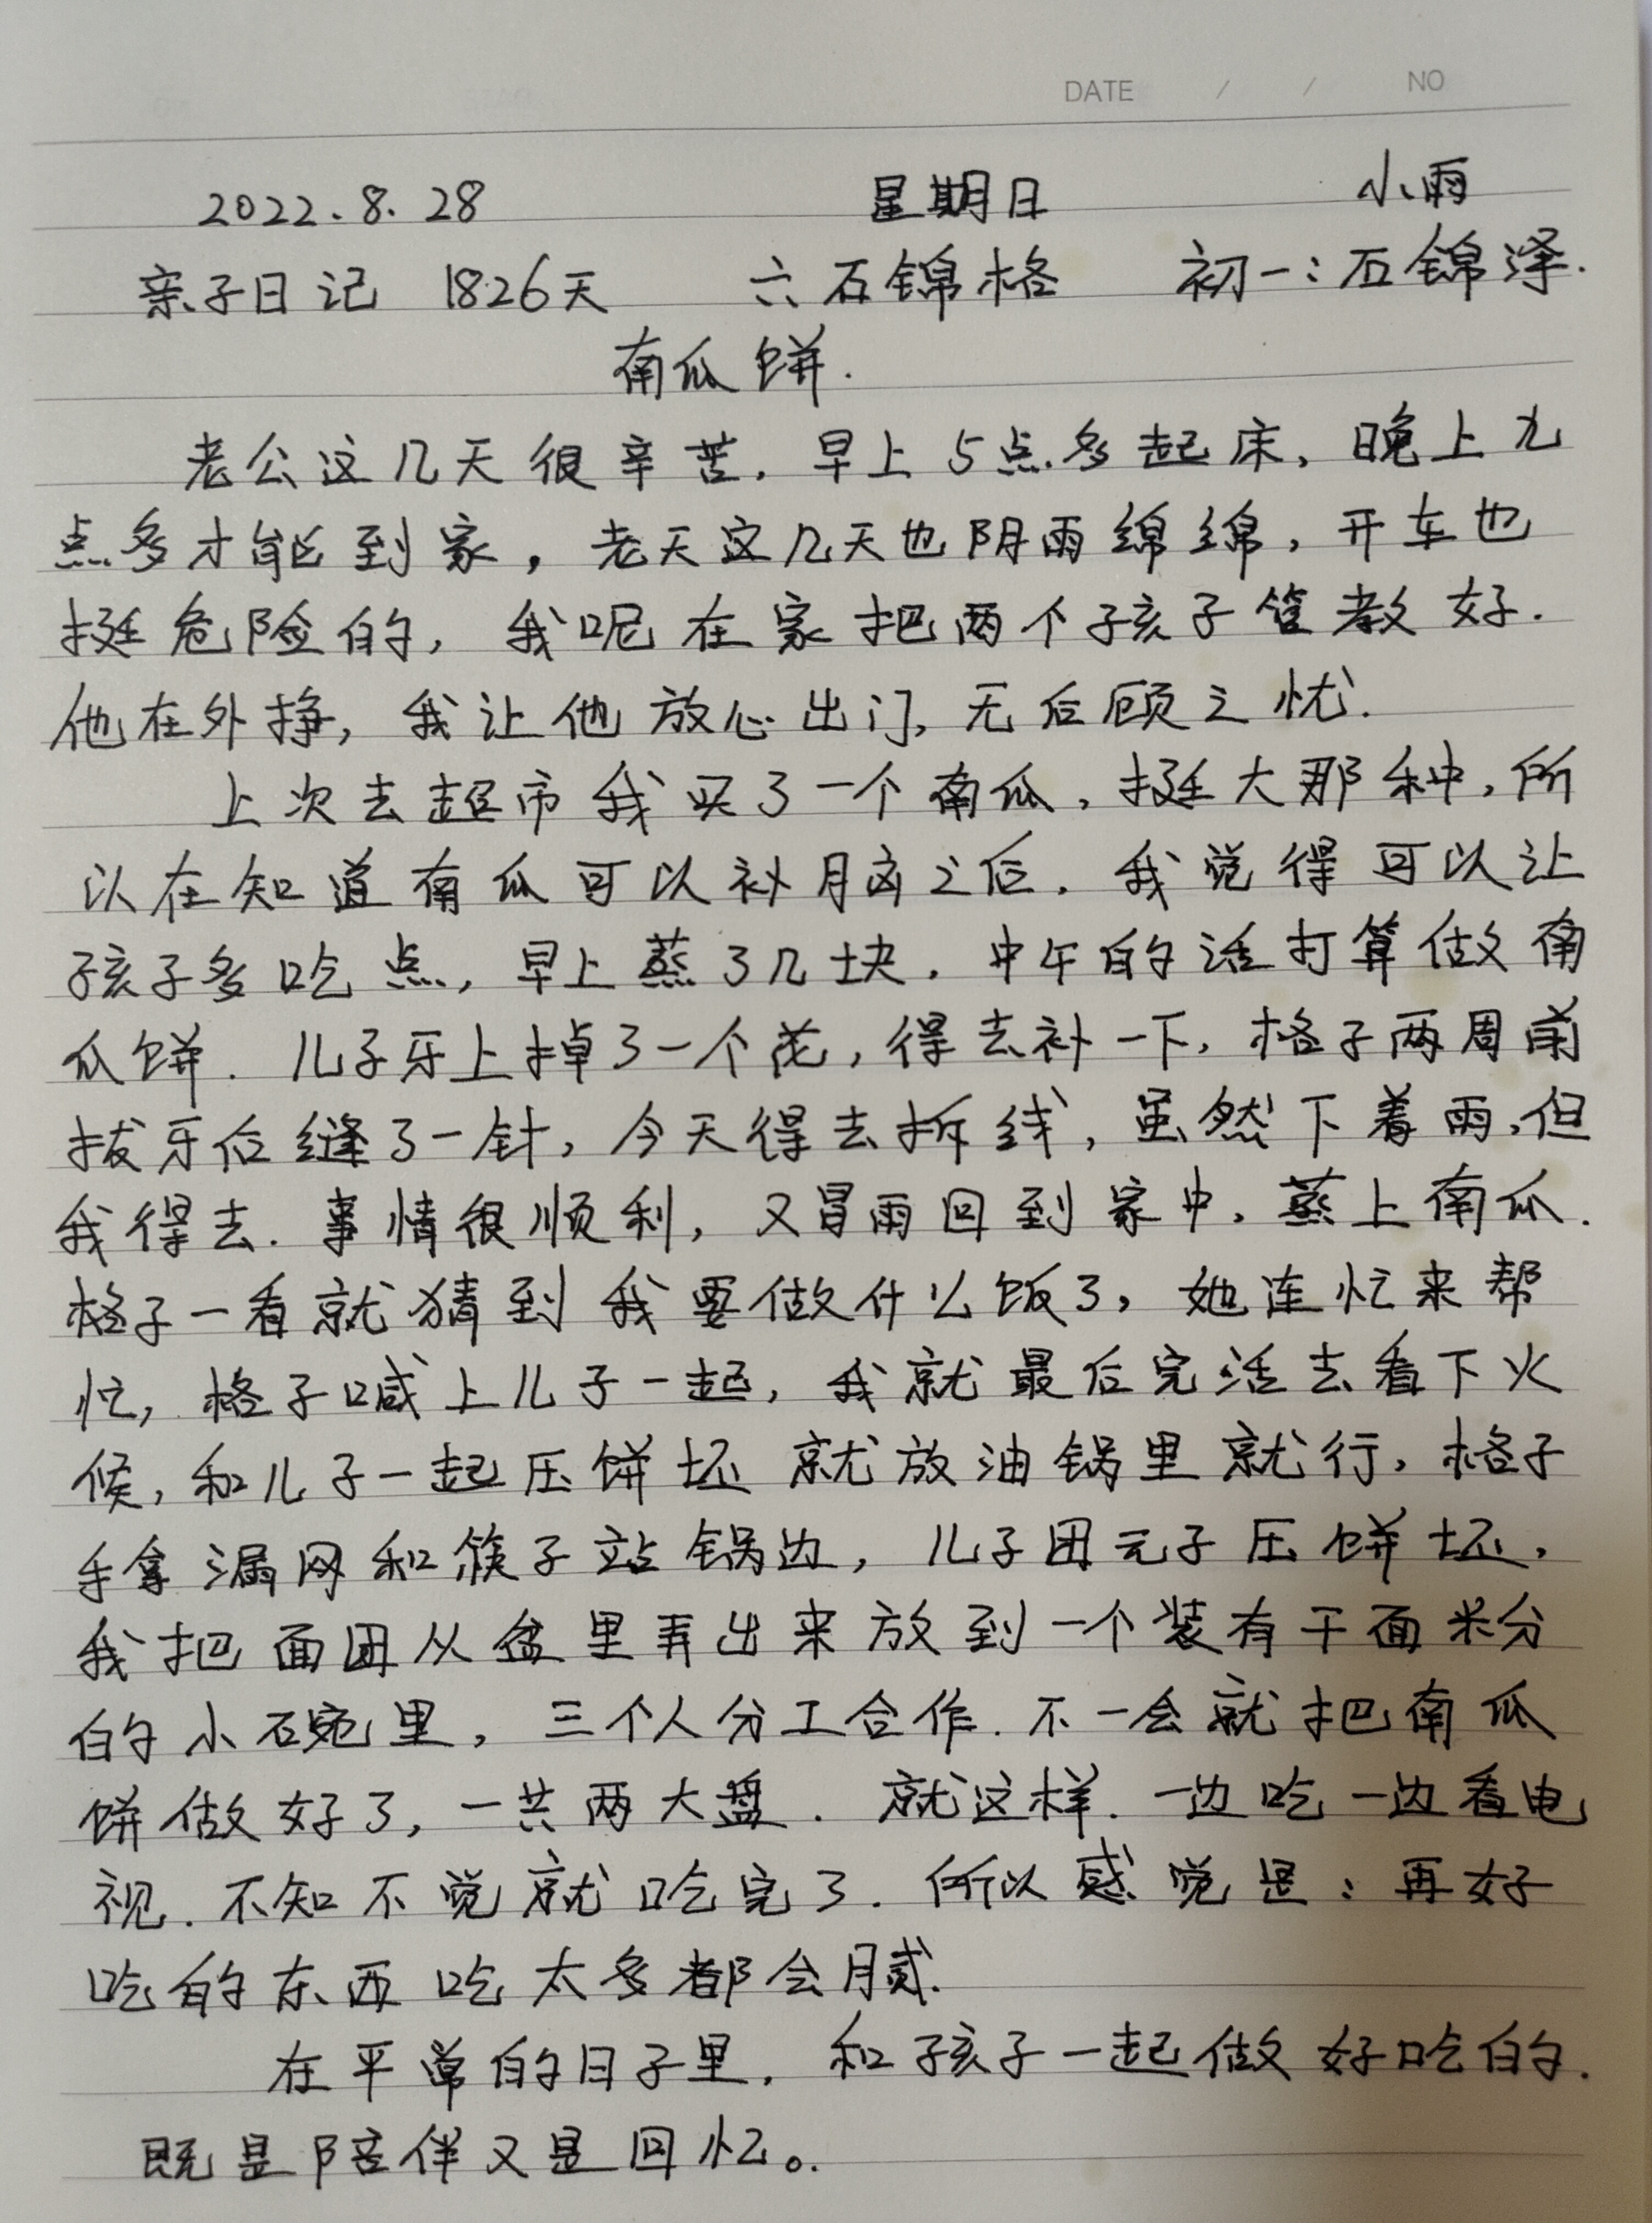 DATE / / NO
2022.8.28 星期日 小雨
亲子日记 1826天 六石锦格 初一:石锦泽.
南瓜饼.
老公这几天很辛苦.早上5点多起床,晚上九
点多才能到家,老天这几天也阴雨绵绵,开车也
挺危险的,我呢在家把两个孩子管教好.
他在外挣,我让他放心出门,无后顾之忧.
上次去超市我买了一个南瓜,挺大那种,所
以在知道南瓜可以补脑之后.我觉得可以让
孩子多吃点,早上蒸了几块.中午的话打算做南
瓜饼.儿子牙上掉了一个花,得去补一下,格子两周前
拔牙后缝了一针,今天得去拆线,虽然下着雨,但
我得去.事情很顺利,又冒雨回到家中,蒸上南瓜.
格子一看就猜到我要做什么饭了,她连忙来帮
忙,格子喊上儿子一起,我就最后完活去看下火
候,和儿子一起压饼坯就放油锅里就行,格子
手拿漏网和筷子站锅边,儿子团元子压饼坯,
我把面团从盆里弄出来放到一个装有干面粉
的小碗里,三个人分工合作.不一会就把南瓜
饼做好了,一共两大盘.就这样.一边吃一边看电
视.不知不觉就吃完了.所以感觉是:再好
吃的东西吃太多都会腻.
在平常的日子里,和孩子一起做好吃的.
既是陪伴又是回忆。